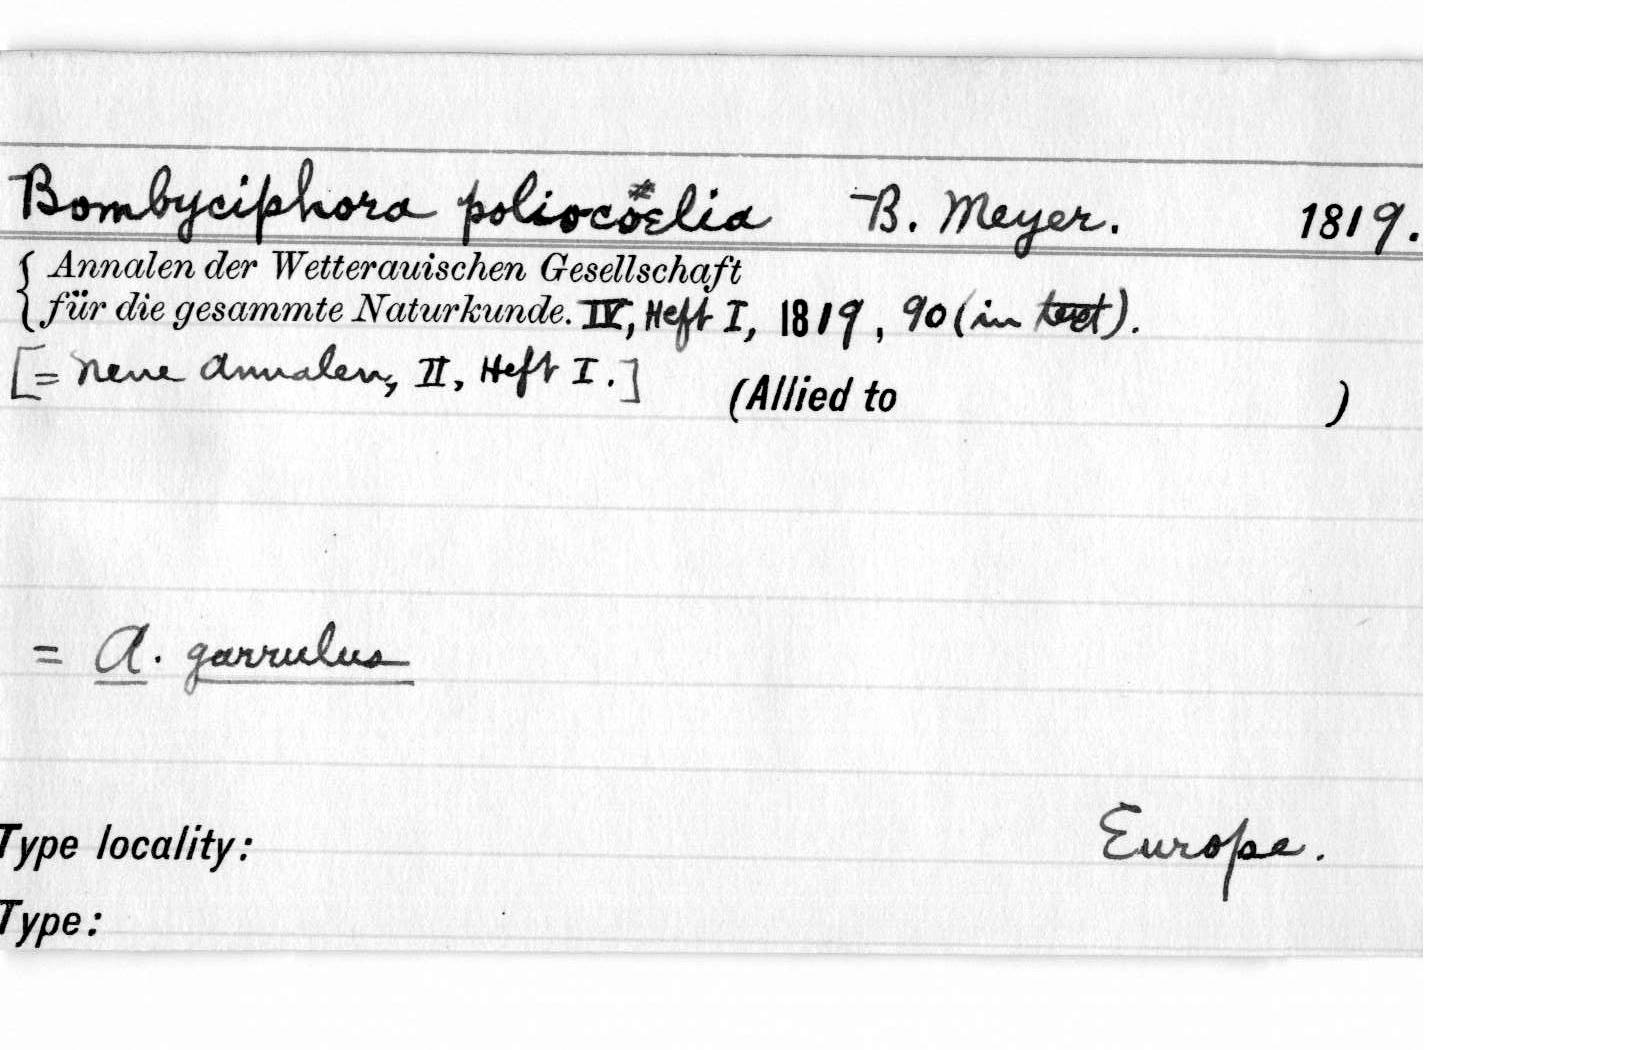 Bombyciphora poliocoelia B. Meyer. 1819.
{ Annalen der Wetterauischen Gesellschaft
für die gesammte Naturkunde. IV, Heft I, 1819, 90 (in text).
[= neue Annalen, II, Heft I.]
(Allied to )
= A. garrulus
Type locality: Europe.
Type: